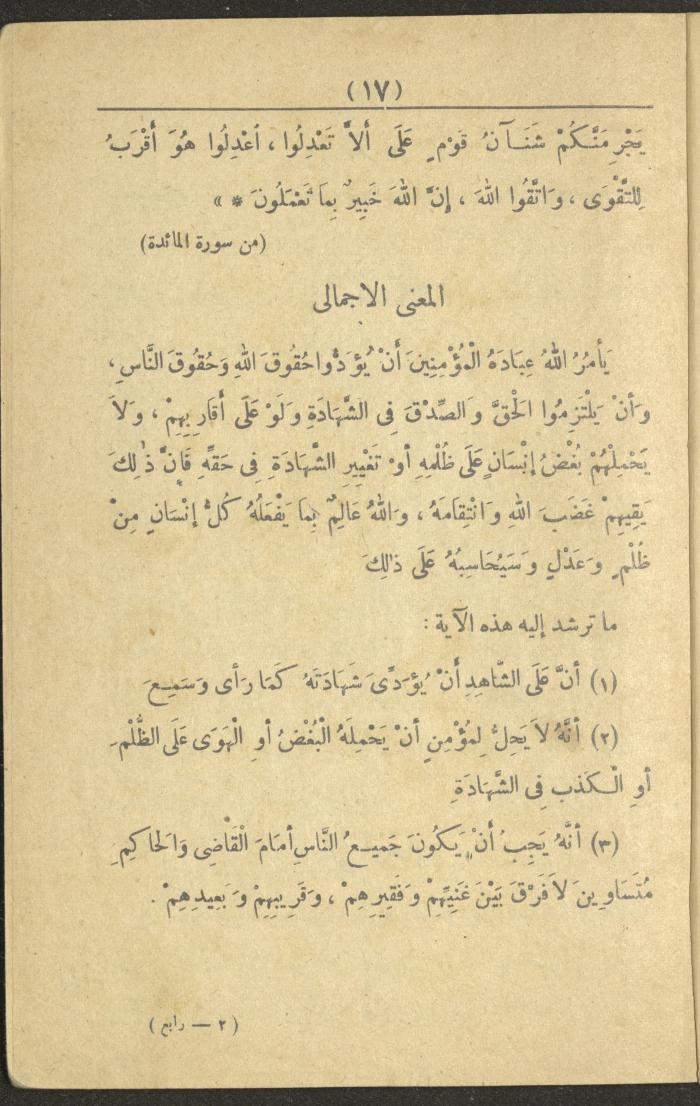 (١٧)
يَجْرِمَنَّكُمْ شَنَآنُ قَوْمٍ عَلَى أَلاَّ تَعْدِلُوا ، اعْدِلُوا هُوَ أَقْرَبُ
لِلتَّقْوَى ، وَاتَّقُوا اللهَ ، إِنَّ اللهَ خَبِيرٌ بِمَا تَعْمَلُونَ * »
(من سورة المائدة)
المعنى الاجمالى
يَأمُرُ اللهُ عِبَادَهُ الْمُؤْمِنِينَ أَنْ يُؤَدُّوا حُقُوقَ اللهِ وَحُقُوقَ النَّاسِ ،
وَأَنْ يَلْتَزِمُوا الْحَقَّ وَالصِّدْقَ فِى الشَّهَادَةِ وَلَوْ عَلَى أَقَارِبِهِمْ ، وَلاَ
يَحْمِلْهُمْ بُغْضُ إِنْسَانٍ عَلَى ظُلْمِهِ أَوْ تَغْيِيرِ الشَّهَادَةِ فِى حَقِّهِ فَإِنَّ ذٰلِكَ
يَقِيهِمْ غَضَبَ اللهِ وَانْتِقَامَهُ ، وَاللهُ عَالِمٌ بِمَا يَفْعَلُهُ كُلُّ إِنْسَانٍ مِنْ
ظُلْمٍ وَعَدْلٍ وَسَيُحَاسِبُهُ عَلَى ذٰلِكَ
ما ترشد إليه هذه الآية :
(١) أَنَّ عَلَى الشَّاهِدِ أَنْ يُؤَدِّىَ شَهَادَتَهُ كَمَا رَأى وَسَمِعَ
(٢) أَنَّهُ لاَ يَحِلُّ لِمُؤْمِنٍ أَنْ يَحْمِلَهُ الْبُغْضُ أَوِ الْهَوَى عَلَى الظُّلْمِ
أَوِ الْكَذِبِ فِى الشَّهَادَةِ
(٣) أَنَّهُ يَجِبُ أَنْ يَكُونَ جَمِيعُ النَّاسِ أَمَامَ الْقَاضِى وَالْحَاكِمِ
مُتَسَاوِينَ لاَ فَرْقَ بَيْنَ غَنِيِّهِمْ وَفَقِيرِهِمْ ، وَقَرِيبِهِمْ وَبَعِيدِهِمْ .
(٢ — رابع)